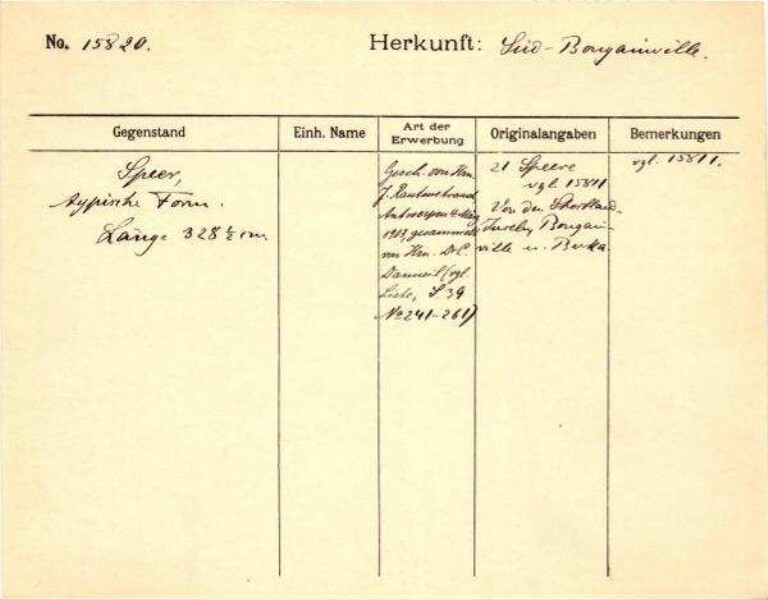 No. 15820.
Herkunft: Süd-Bougainville.
Gegenstand
Einh. Name
Art der Erwerbung
Originalangaben
Bemerkungen
Speer,
typische Form.
Länge 328 ½ cm.
Gesch. von Hrn.
J. Rautenstrauch
Antwerpen
1913, gesammelt
von Hrn. Dr. C.
Danneil (vgl.
Liste, S. 39
No 241-261)
21 Speere
vgl. 15811
Von den Shortland-
Inseln, Bougain-
ville u. Buka.
vgl. 15811.